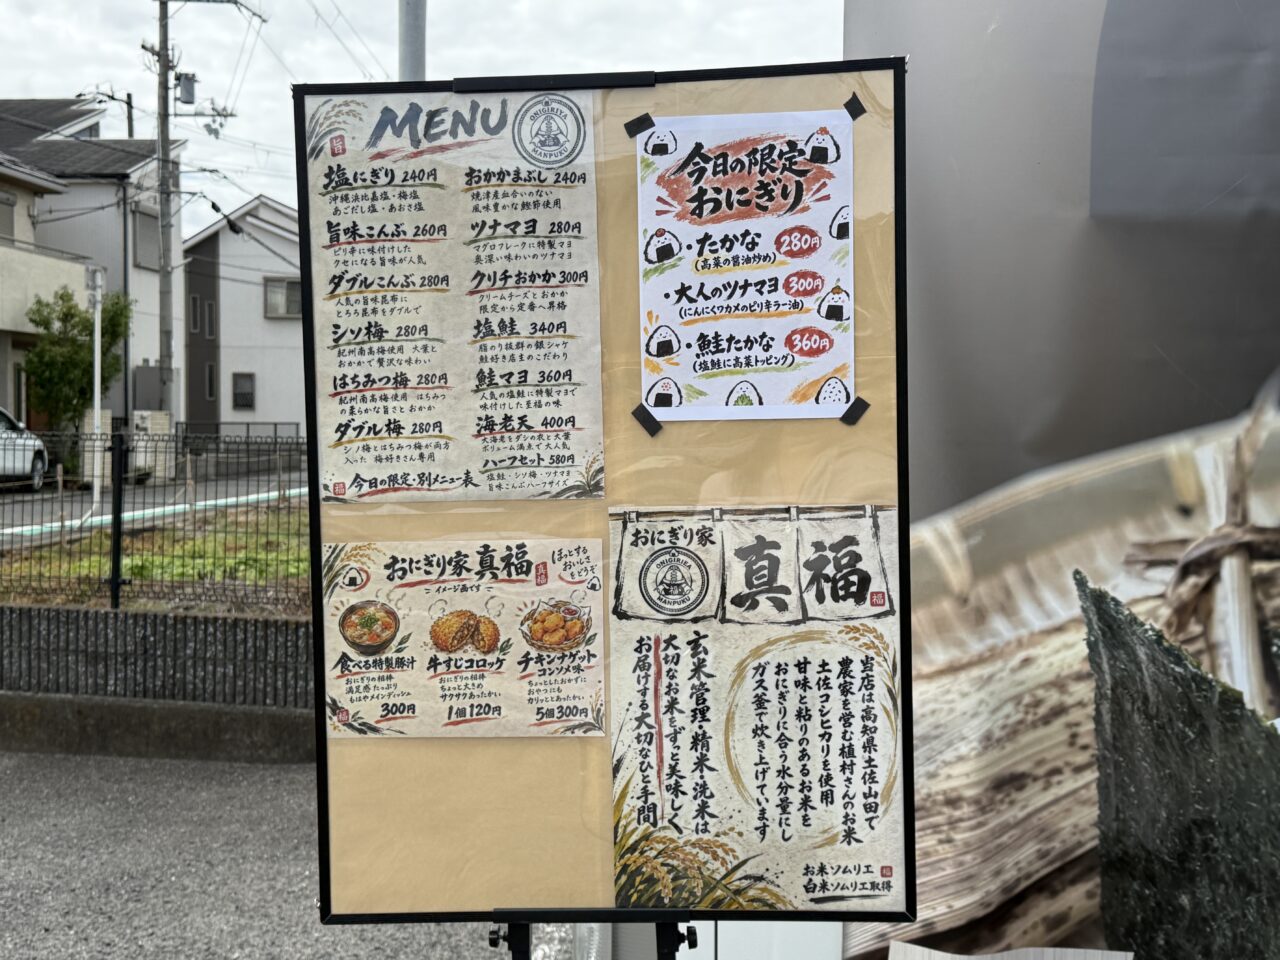 MENU
旨
ONIGIRIYA
MANPUKU
塩にぎり 240円
沖縄浜比嘉塩・梅塩
あごだし塩・あおさ塩
旨味こんぶ 260円
ピリ辛に味付けした
クセになる旨味が人気
ダブルこんぶ 280円
人気の旨味昆布に
とろろ昆布をダブルで
シソ梅 280円
紀州南高梅使用 大葉と
おかかで贅沢な味わい
はちみつ梅 280円
紀州南高梅使用 はちみつ
の柔らかな旨さと おかか
ダブル梅 280円
シソ梅とはちみつ梅が両方
入った 梅好きさん専用
福 今日の限定・別メニュー表
おかかまぶし 240円
焼津産血合いのない
風味豊かな鰹節使用
ツナマヨ 280円
マグロフレークに特製マヨ
奥深い味わいのツナマヨ
クリチおかか 300円
クリームチーズとおかか
限定から定番へ昇格
塩鮭 340円
脂のり抜群の銀シャケ
鮭好き店主のこだわり
鮭マヨ 360円
人気の塩鮭に特製マヨで
味付けした至福の味
海老天 400円
大海老をダシの衣と大葉
ボリューム満点で大人気
ハーフセット 580円
塩鮭・シソ梅・ツナマヨ
旨味こんぶハーフサイズ
今日の限定
おにぎり
・たかな 280円
(高菜の醤油炒め)
・大人のツナマヨ 300円
(にんにくワカメのピリ辛ラー油)
・鮭たかな 360円
(塩鮭に高菜トッピング)
おにぎり家 真福
真福
ほっとする
おいしさ
をどうぞ
イメージ画です
食べる特製豚汁
おにぎりの相棒
満足感たっぷり
もはやメインディッシュ
300円
牛すじコロッケ
おにぎりの相棒
ちょっと大きめ
サクサクあったかい
1個120円
チキンナゲット
コンソメ味
ちょっとしたおかずに
おやつにも
カリッととあったかい
5個300円
福
おにぎり家
ONIGIRIYA
MANPUKU
真福
福
当店は高知県土佐山田で
農家を営む植村さんのお米
土佐コシヒカリを使用
甘味と粘りのあるお米を
おにぎりに合う水分量にし
ガス釜で炊き上げています
玄米管理・精米・洗米は
大切なお米をずっと美味しく
お届けする大切なひと手間
お米ソムリエ 福
白米ソムリエ取得